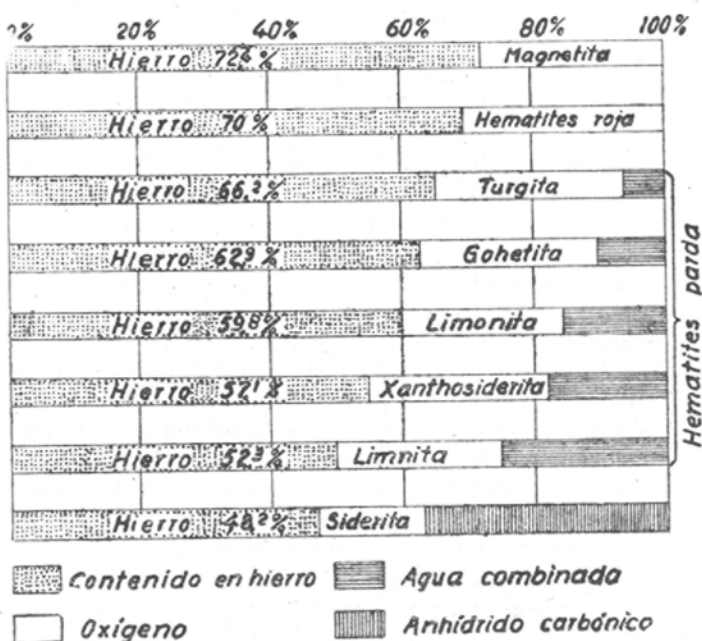 0% 20% 40% 60% 80% 100%
Hierro 72,4 % Magnetita
Hierro 70 % Hematites roja
Hierro 66,2 % Turgita
Hierro 62,9 % Gohetita
Hierro 59,8 % Limonita
Hierro Xanthosiderita
Hierro 52,3 % Limnita
Hierro 48,2 % Siderita
Hematites parda
Contenido en hierro
Agua combinada
Oxígeno
Anhídrido carbónico